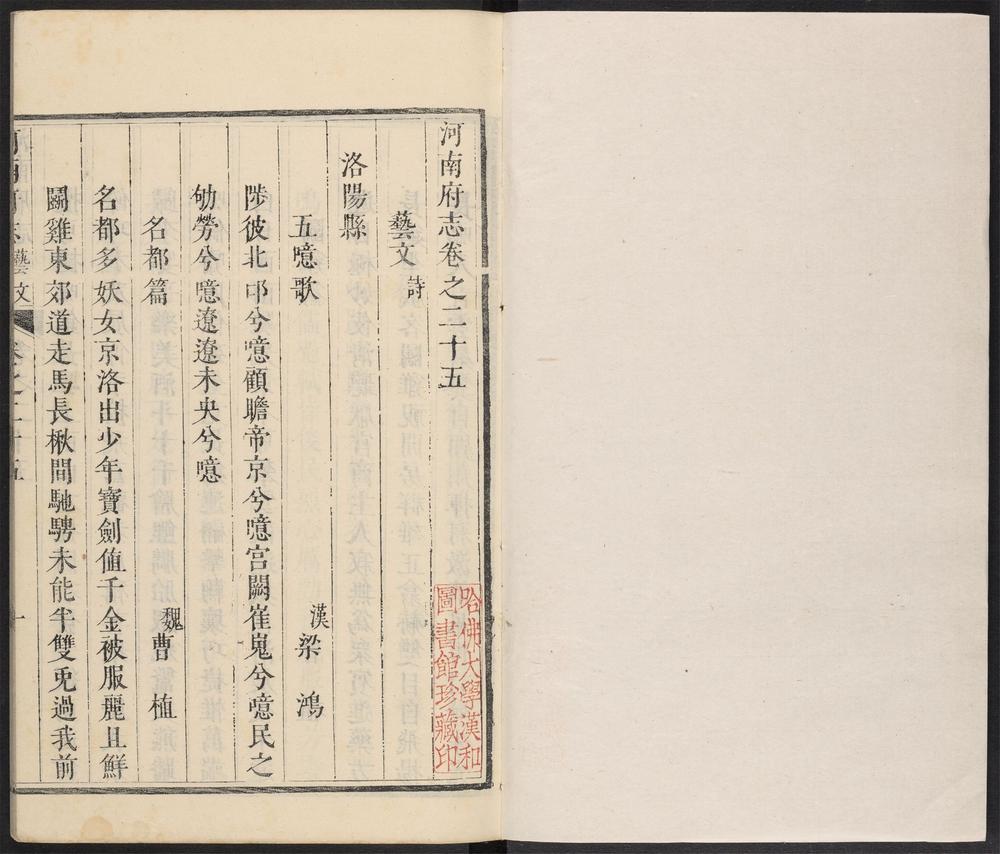 河南府志卷之二十五
藝文 詩
洛陽縣
五噫歌 漢 梁鴻
陟彼北邙兮噫顧瞻帝京兮噫宮闕崔嵬兮噫民之
劬勞兮噫遼遼未央兮噫
名都篇 魏 曹植
名都多妖女京洛出少年寶劍值千金被服麗且鮮
鬭雞東郊道走馬長楸間馳騁未能半雙兎過我前
藝文 卷之二十五 一
哈佛大學漢和
圖書館珍藏印